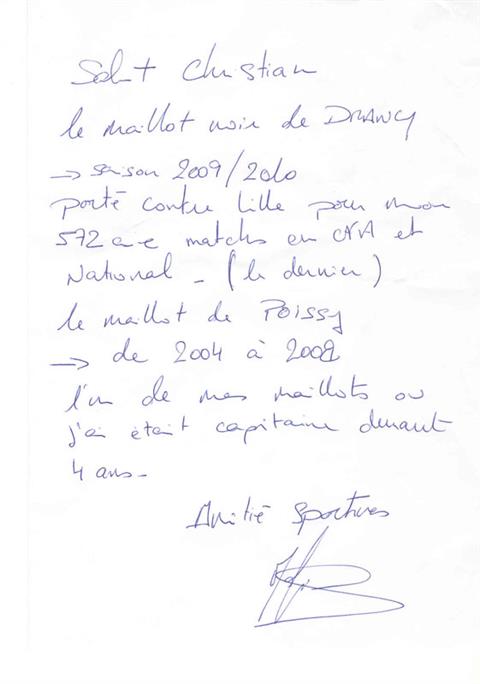 Salut Christian
le maillot noir de DRANCY
→ saison 2009/2010
porté contre Lille pour mon
572 ave matchs en CFA et
National - (le dernier)
le maillot de POISSY
→ de 2004 à 2008
l'un de mes maillots ou
j'ai était capitaine durant
4 ans-
Amitié Sportives